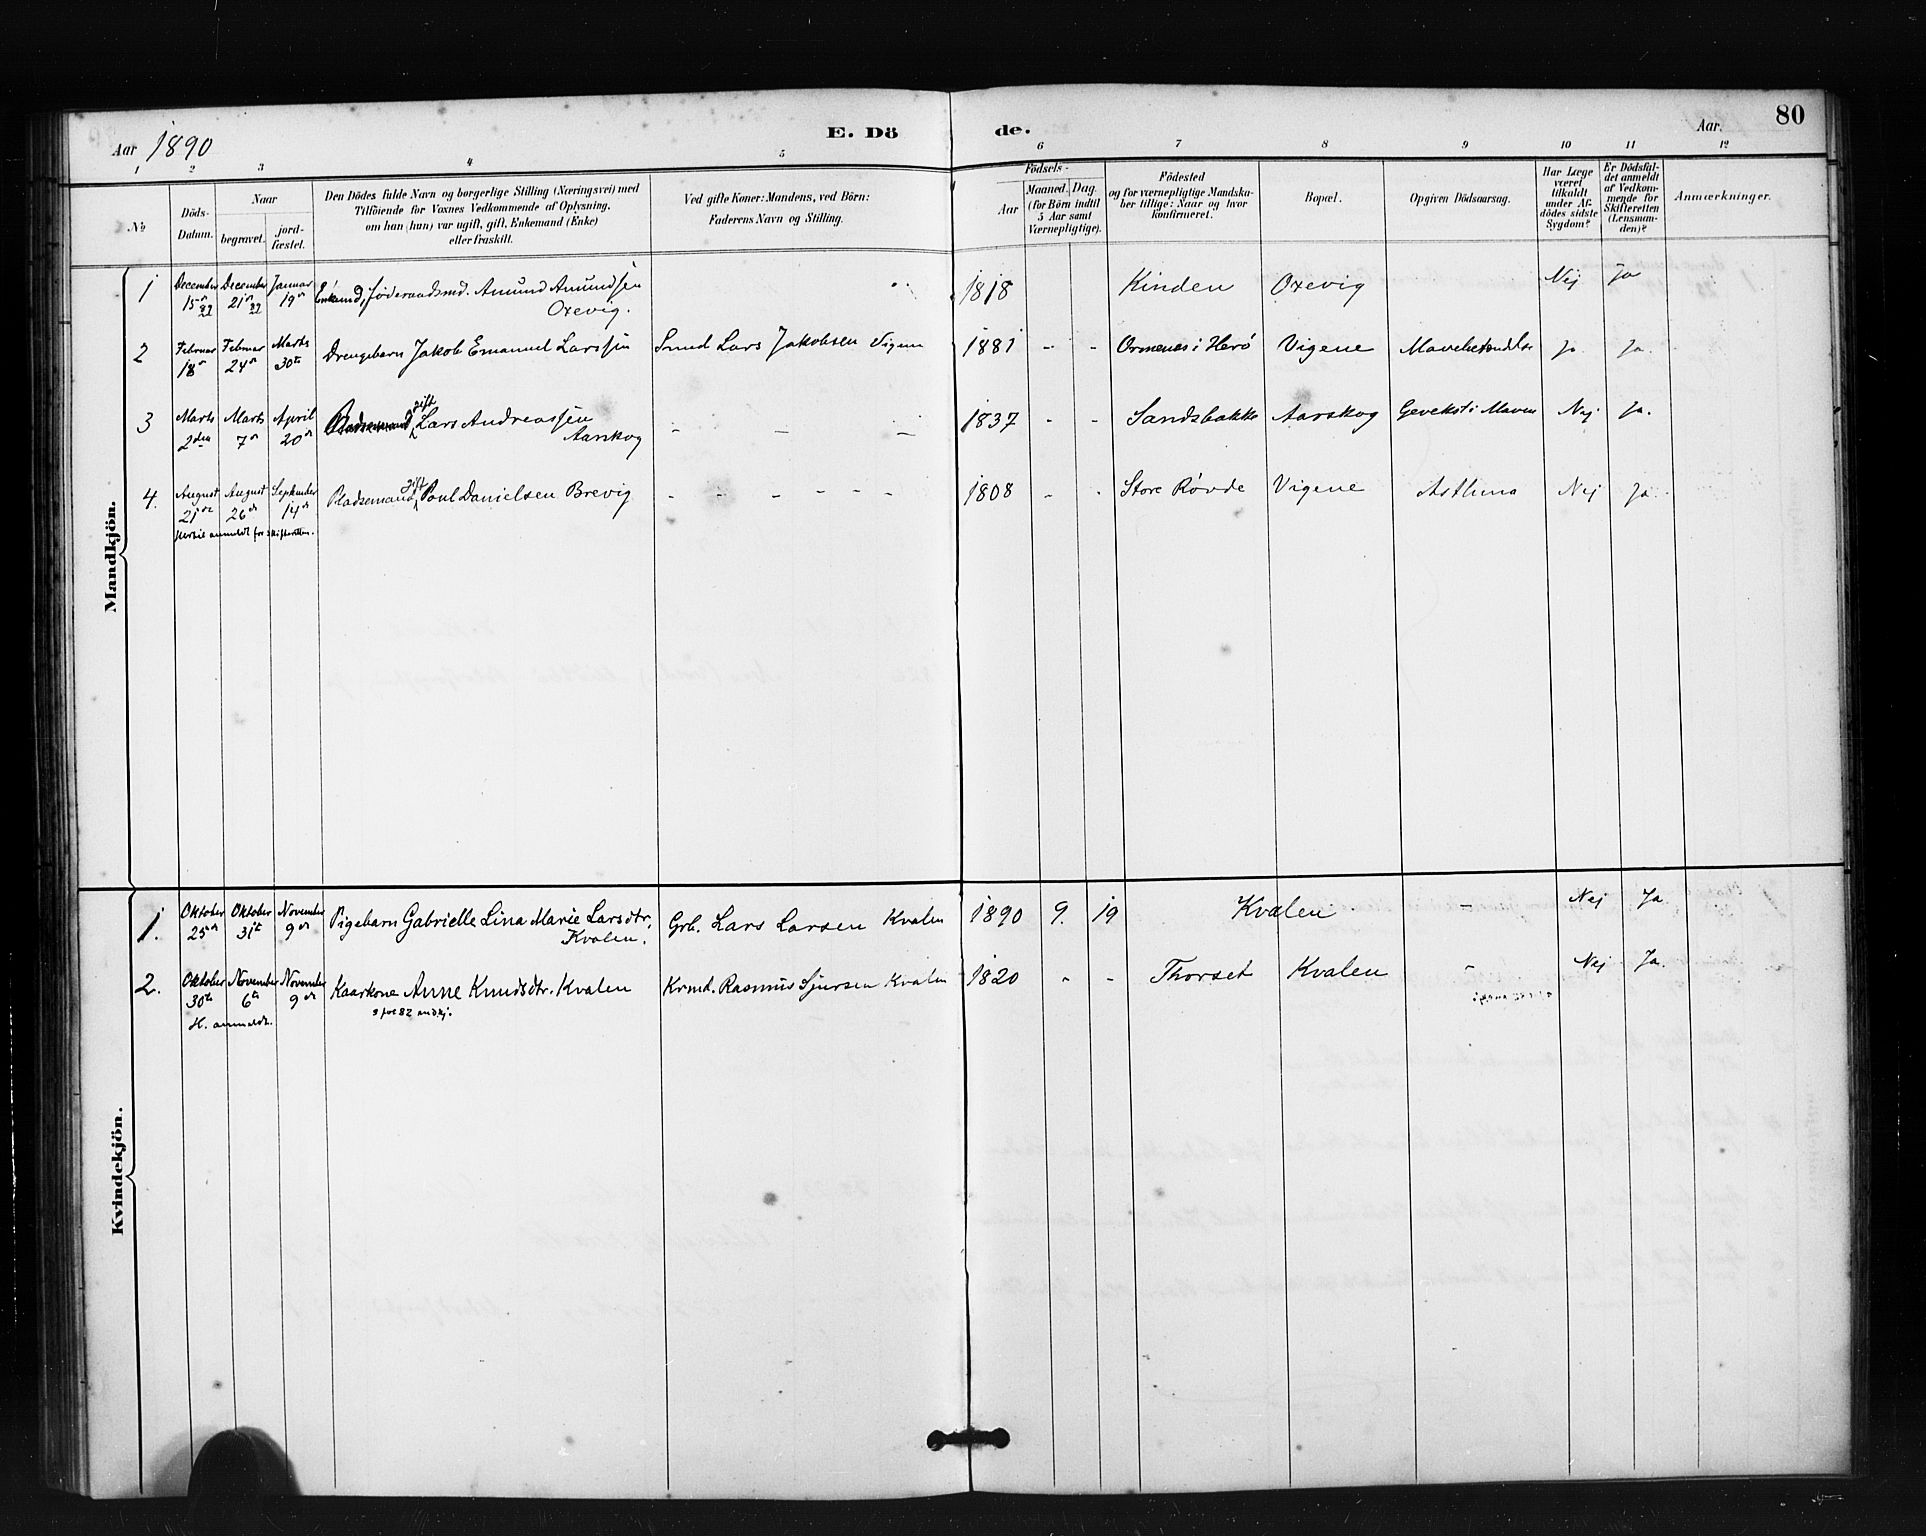 80
Aar 1890
E. Dö
de.
Aar.
1 2 3 4 5 6 7 8 9 10 11 12
№
Döds-
Datum.
Naar
begravet.
jord-
fæstet.
Den Dödes fulde Navn og borgerlige Stilling (Næringsvei) med
Tilföiende for Voxnes Vedkommende af Oplysning,
om han (hun) var ugift, gift, Enkemand (Enke)
eller fraskilt.
Ved gifte Koner: Mandens, ved Börn:
Faderens Navn og Stilling.
Födsels-
Aar
Maaned. Dag.
(for Börn indtil
5 Aar samt
Værnepligtige).
Födested
og for værnepligtige Mandska-
ber tillige: Naar og hvor
konfirmeret.
Bopæl.
Opgiven Dödsaarsag.
Har Læge
været
tilkaldt
under Af-
dödes sidste
Sygdom?
Er Dödsfal-
det anmeldt
af Vedkom-
mende for
Skifteretten
(Lensman-
den)?
Anmærkninger.
Mandkjön.
1 December December Januar
15de 89 21de 89 19de
Enkemd, föderaadsmd. Amund Amundsen
Oxevig.
1818 Kinden Oxevig Nej Ja
2 Februar Februar Marts Drengebarn Jakob Emanuel Larssen Lars Jakobsen 1881 - - Ormenes i Herö Vigene Ja. Ja.
18de 24de 30te
3 Marts Marts April gift Lars Andreassen - - - 1837 - - Sandsbakke Aarskog Gevekst i Maven Nej Ja.
2den 7de 20de Aarskog
4. August August September Pladsemand, gift Poul Danielsen Brevig - - - - - - 1808 - - Store Røvde Vigene Asthma Nej Ja.
21de 26de 14de
anmeldt for Skifteretten.
Kvindekjön.
1. Oktober Oktober November Pigebarn Gabrielle Lina Marie Larsdtr. Grb. Lars Larsen Kvalen 1890 9. 19 Kvalen - Nej Ja
25de 31te 9de Kvalen.
2. Oktober November November Kaarkone Anne Knudsdtr. Kvalen Krmd. Rasmus Sjursen Kvalen 1820 - - Thorset Kvalen - Nej Ja.
30te 6te 9de
H. anmeldt.